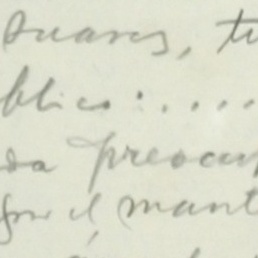 Suares, tu
blico: ....
da preocup
por el mant